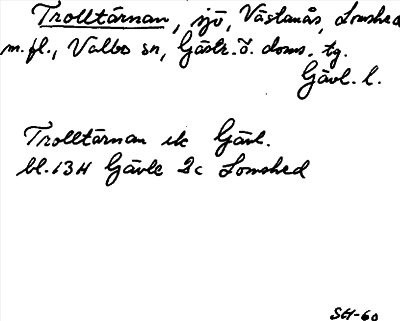 Trolltärnan, sjö, Västanås, Lomshed
m.fl., Valbo sn, Gästr. ö. doms. tg.
Gävl. l.
Trolltärnan ek Gävl.
bl. 13H Gävle 2c Lomshed
SH-60